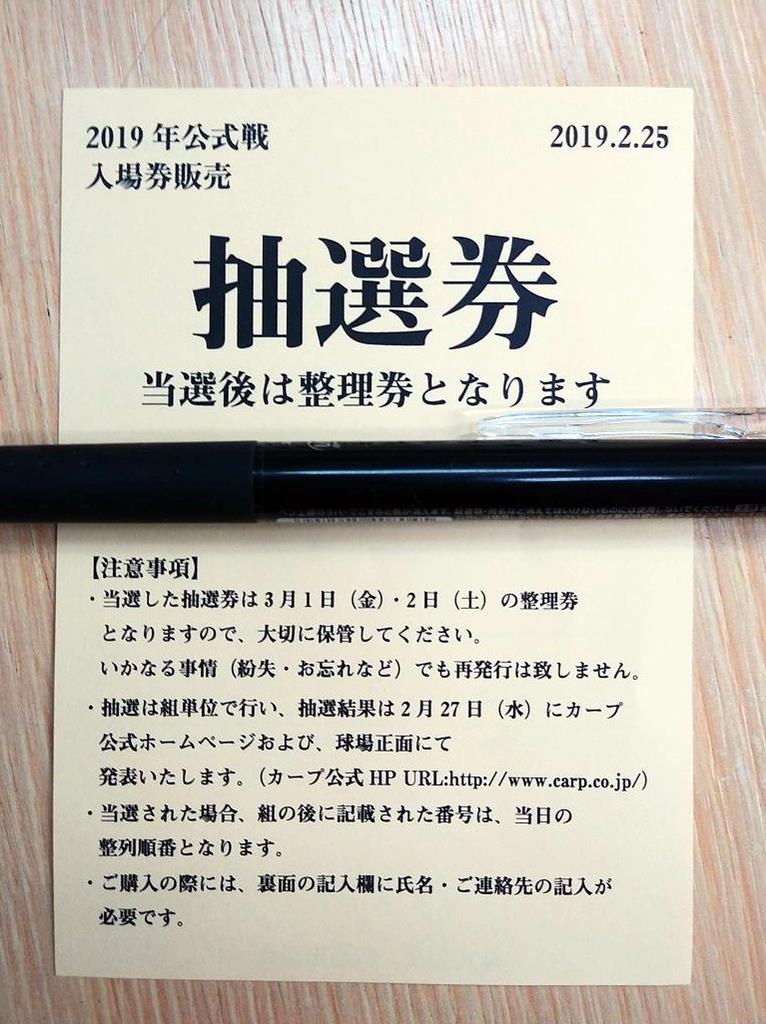 2019年公式戦
入場券販売
2019.2.25
抽選券
当選後は整理券となります
【注意事項】
・当選した抽選券は3月1日（金）・2日（土）の整理券
となりますので、大切に保管してください。
いかなる事情（紛失・お忘れなど）でも再発行は致しません。
・抽選は組単位で行い、抽選結果は2月27日（水）にカープ
公式ホームページおよび、球場正面にて
発表いたします。（カープ公式HP URL:http://www.carp.co.jp/）
・当選された場合、組の後に記載された番号は、当日の
整列順番となります。
・ご購入の際には、裏面の記入欄に氏名・ご連絡先の記入が
必要です。